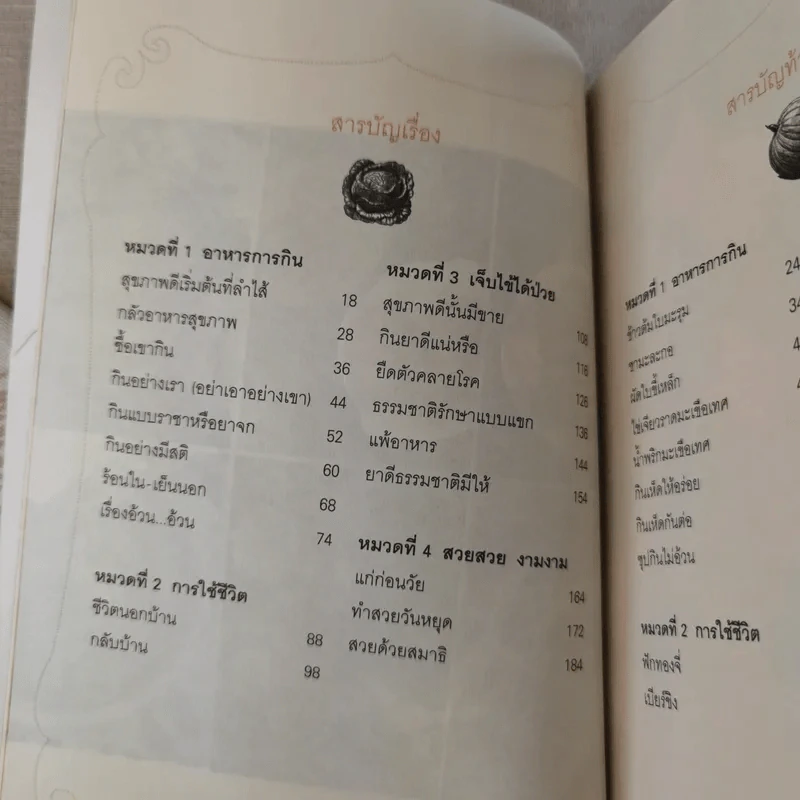 สารบัญเรื่อง
หมวดที่ 1 อาหารการกิน
สุขภาพดีเริ่มต้นที่ลำไส้ 18
กลัวอาหารสุขภาพ 28
ซื้อเขากิน 36
กินอย่างเรา (อย่าเอาอย่างเขา) 44
กินแบบราชาหรือยาจก 52
กินอย่างมีสติ 60
ร้อนใน-เย็นนอก 68
เรื่องอ้วน...อ้วน 74
หมวดที่ 2 การใช้ชีวิต
ชีวิตนอกบ้าน 88
กลับบ้าน 98
หมวดที่ 3 เจ็บไข้ได้ป่วย
สุขภาพดีนั้นมีขาย 108
กินยาดีแน่หรือ 116
ยืดตัวคลายโรค 126
ธรรมชาติรักษาแบบแขก 136
แพ้อาหาร 144
ยาดีธรรมชาติมีให้ 154
หมวดที่ 4 สวยสวย งามงาม
แก่ก่อนวัย 164
ทำสวยวันหยุด 172
สวยด้วยสมาธิ 184
สารบัญท้า
หมวดที่ 1 อาหารการกิน
ข้าวต้มใบมะรุม 24
ชามะละกอ 34
ผัดใบขี้เหล็ก 4
ไข่เจียวราดมะเขือเทศ
น้ำพริกมะเขือเทศ
กินเห็ดให้อร่อย
กินเห็ดกันต่อ
ซุปกินไม่อ้วน
หมวดที่ 2 การใช้ชีวิต
ฟักทองจี่
เบียร์ขิง